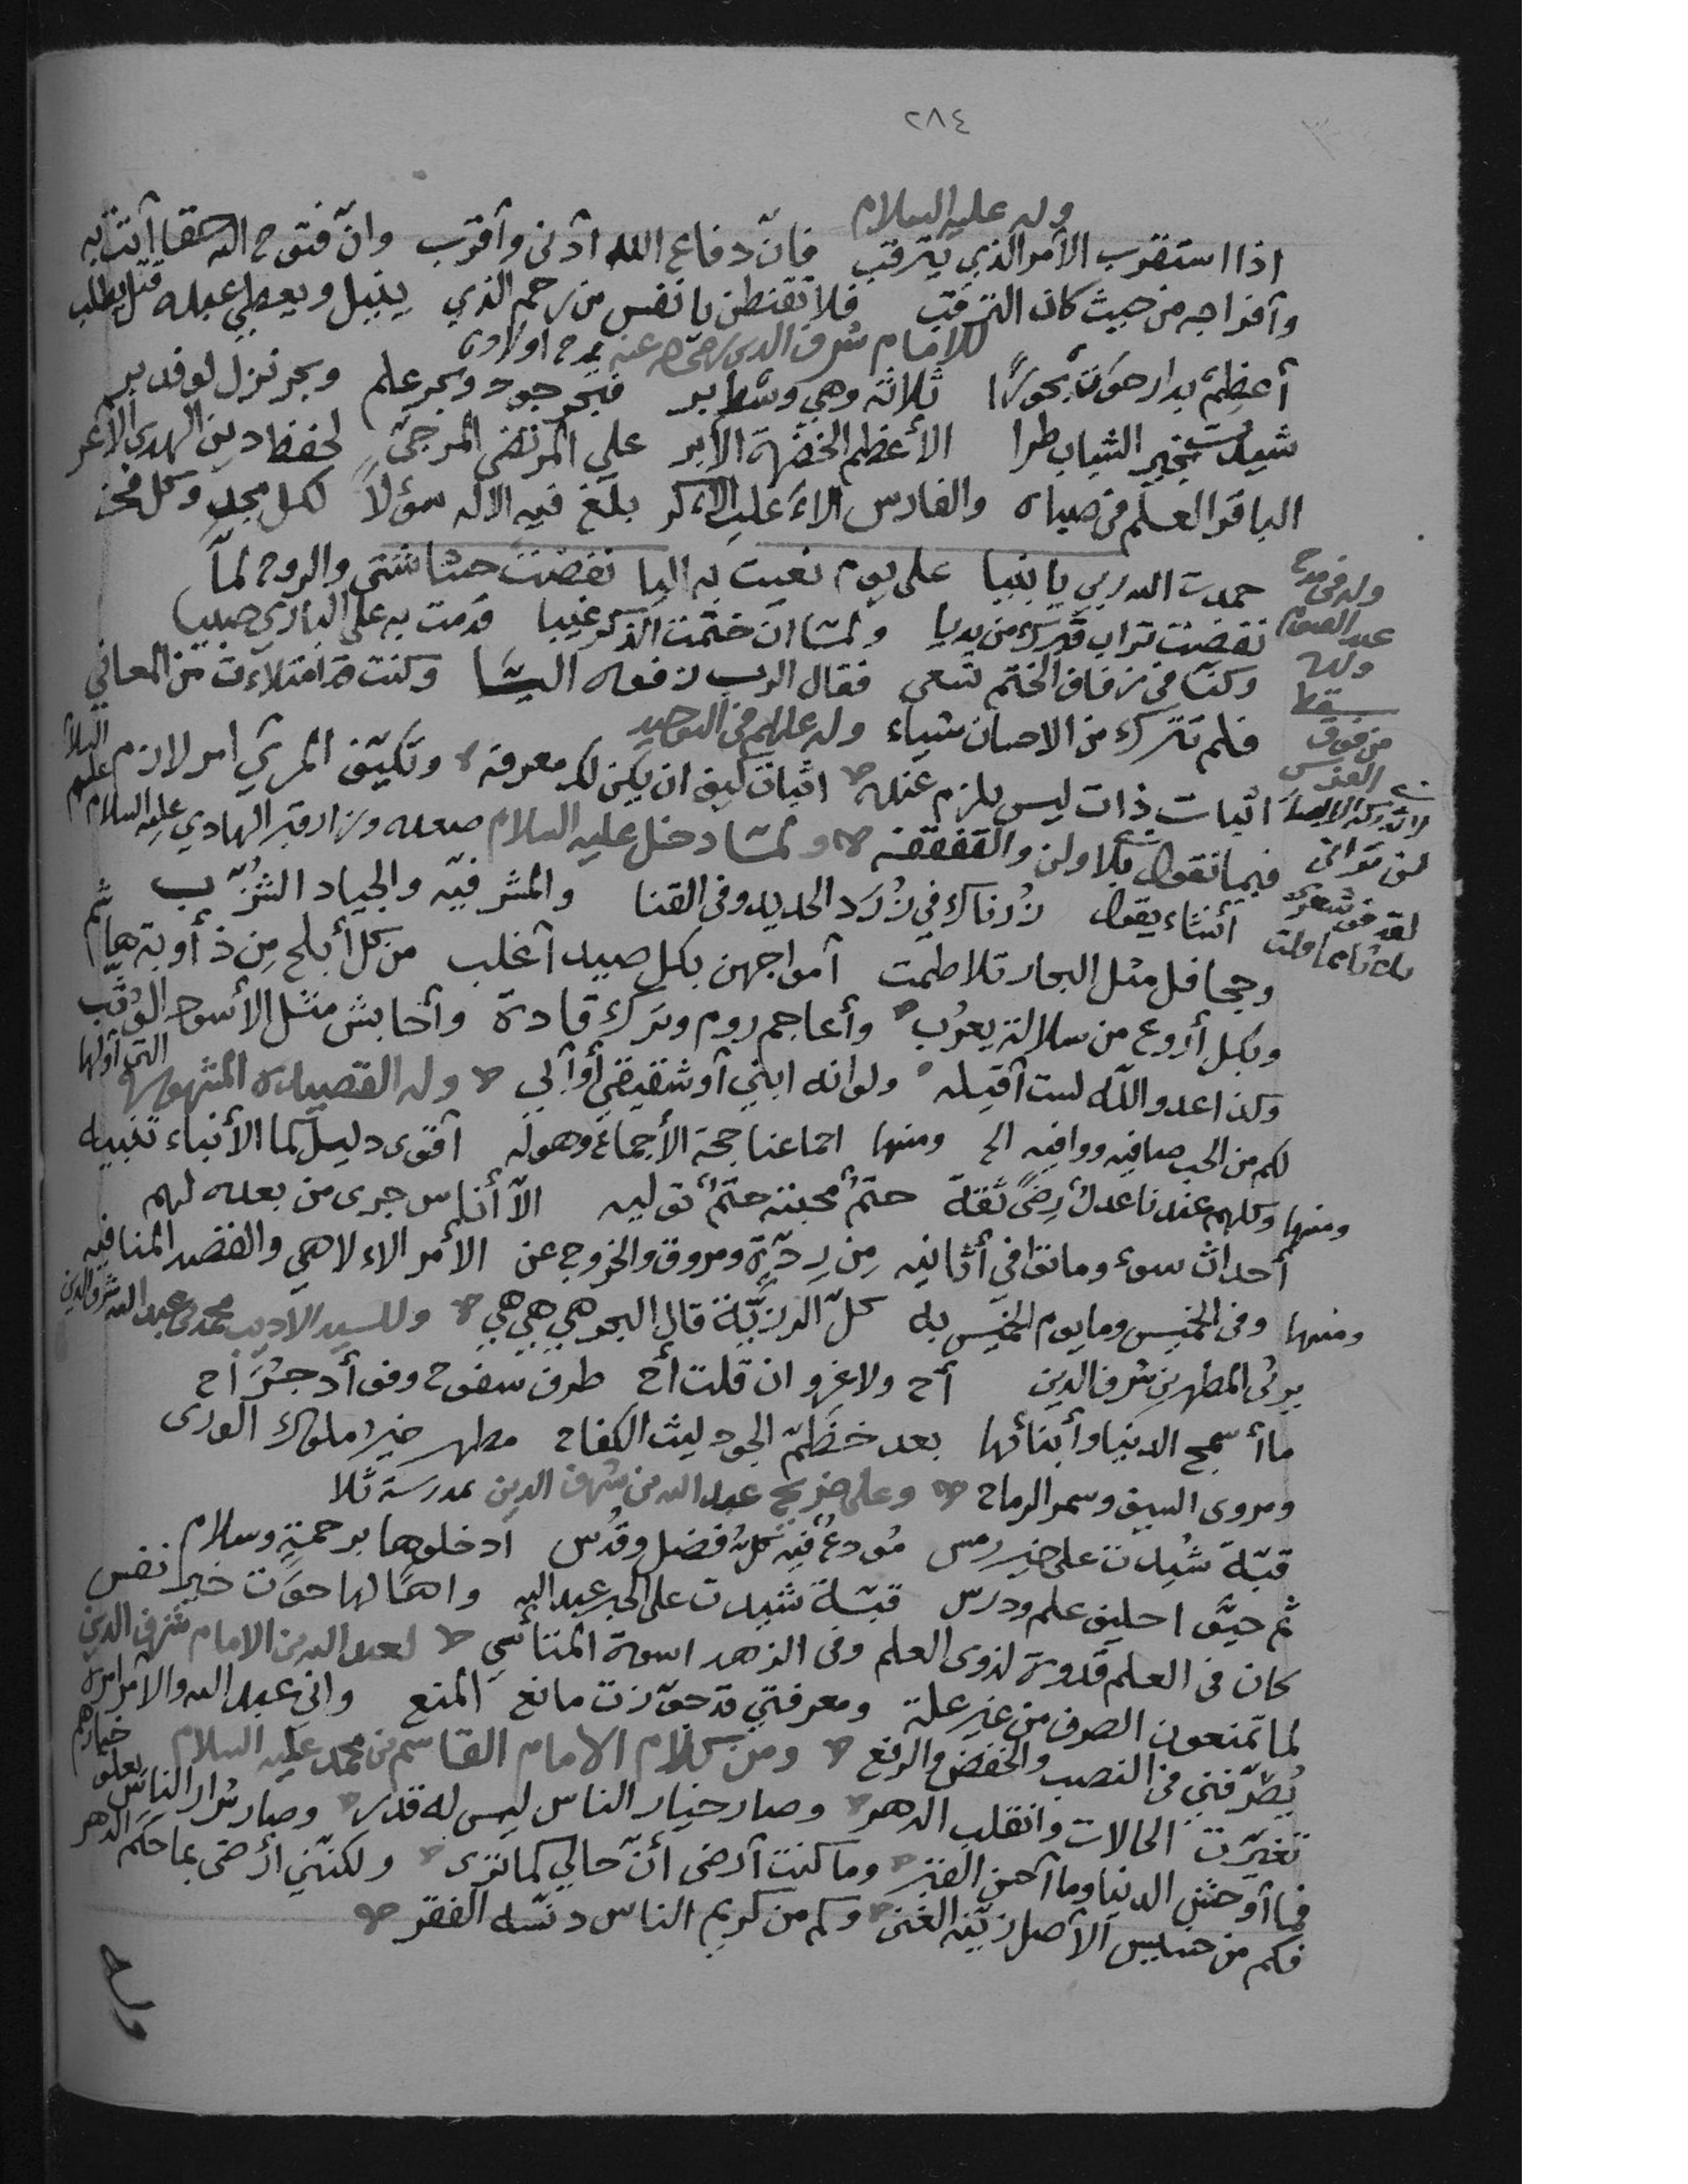 ٢٨٤
وله عليه السلام
اذا استقرب الأمر الذي يترقب فانّ دفاع الله ادنى وأقرب وانّ فتوح الله حقا آتت به
وآفراجه من حيث كان الترقب فلا تقنطن يا نفس من رحم الذي ينيل ويعطي عبده قبل يطلب
للامام شرف الدين رضي الله عنه مدح اولاده
أعظم بدار حوت بحورًا ثلاثة وهي وسط بر فبحر جود وبحر علم وبحر نزل لوفد بر
شيدت بخير الشباب طرا الأعظم الخضم الأبر علي المرتضى المرجىّ لحفظ دين الهدى الأغر
الباقر العلم في صباه والفارس بلغ فيه الاله سؤلاً لكل مجد وكل فخر
حمدت الله ربي يا بنيا على يوم نعيت به اليا نفضت حشاشتي والروح لمّا
نفضت تراب قبرك من يديا ولمّا ان ختمت الذكر غيبا قدمت به على الباري صبيا
وكنّا في زفاف الختم نسعى فقال الرب زفوه اليّا وكنت قد امتلأت من المعاني
فلم تترك من الاحسان شياء وله عليلم في التوحيد
اثبات ذات ليس يلزم عنده اثبات كيف ان يكن لك معرفه وتكيّف المرئي امر لازم
فيما نقول بلا ولن والفقفقه ولمّا دخل عليه السلام صعده وزار قبر الهادي عليه السلام
أنشاء يقول زرناك في زرد الحديد وفي القنا والمشرفيّه والجياد الشزّب
وجحافل مثل البحار تلاطمت آمواجهن بكل صيد آغلب من كل أبلج من ذأوبة هاشم
وبكل أروع من سلالة يعرب وأعاجم روم وترك قادة وأحابش مثل الأسود الوثّب
وكذا عدو الله لست آقيله ولوانه ابني آو شقيقي أو آبي وله القصيده المشهوره التي آولها
لكم من الحب صافيه ووافيه الخ ومنها اجماعنا حجة الأجماع وهوله آقوى دليل كما الأنباء تنبيه
ومنها وكلهم عندنا عدل رضىً ثقة حتم محبته حتم توليه الآ أناس جرى من بعده لهم
أحداث سوء وماتوا في أثانيه من ردّة ومروق والخروج عن الأمر الالاهي والفضه المنافيه
ومنها وفي الخميس وما يوم الخميس به كلّ الرزيّة قال البحر هي هي هي وللسيد الأديب محمد بن عبد الله شرف الدين
يرثى المطهر بن شرف الدين أح ولاغرو ان قلت أح طرف سفوح وفؤأد جرَاح
ما أسمج الدنيا وأبنائها بعد خظَمّ الجود ليث الكفاح مطهر خير ملوك الورى
ومروى السيف وسمر الرماح وعلى ضريح عبد الله بن شرف الدين بمدرسة ثلا
قبّة شيدت على خير رمس مودعٌ فيه كل فضل وقدس ادخلوها برحمةٍ وسلام
ثم حيّوا حليف علم ودرس قبّة شيدت على الحبر عبد الله واهًا لها حوَت خير نفس
كان في العلم قدوة لذوى العلم وفي الزهد اسوة المتأسّي لعبد الله بن الامام شرف الدين
لما تمنعون الصرف من غير علة ومعرفتي قد حوّزت مانع المنع واني عبد الله والأمر امره
يصرّفني في النصب والخفض والرفع ومن كلام الامام القاسم بن محمد عليه السلام
تغيّرت الحالات وانقلب الدهر وصار خيار الناس ليس له قدر وصار شرار الناس يعلو خيارهم
فما أوحش الدنيا وما آحسن القبر وما كنت آرضى أنّ حالي كما ترى ولكنّني أرضى بما حكم الدهر
فكم من خسيس الأصل زيّنه الغنى وكم من كريم الناس دنّسه الفقر
وله في مدح
عبد القيوم
ولده
سقط
من فوق
الفرس